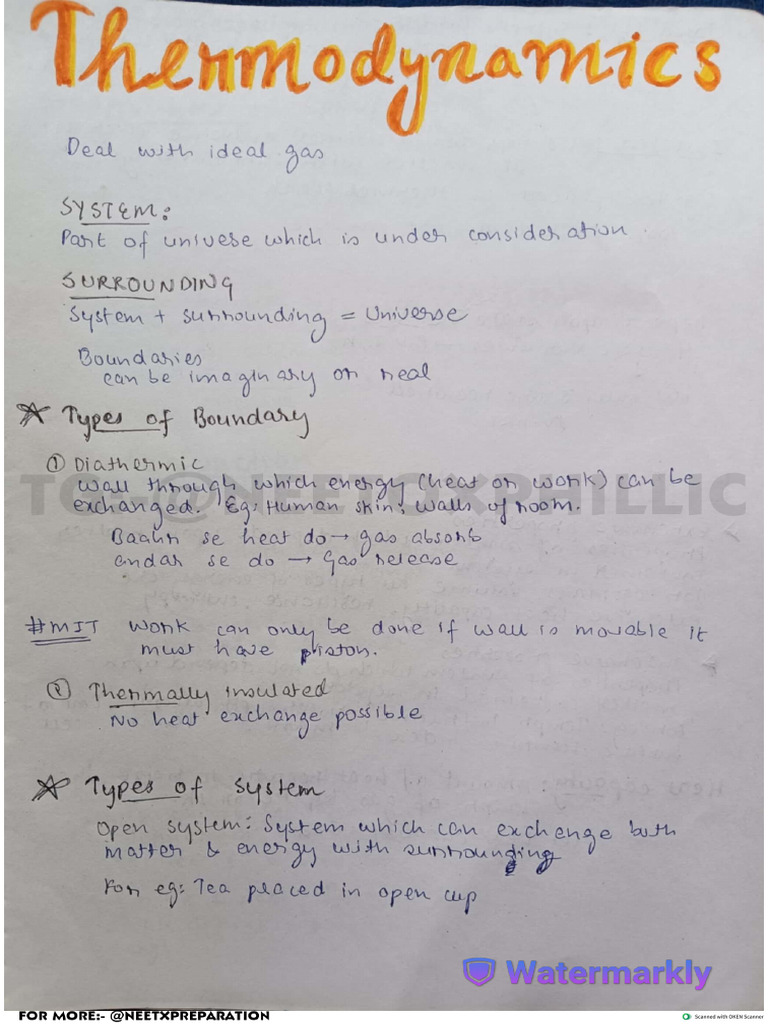 Thermodynamics
Deal with ideal gas
SYSTEM:
Part of univese which is under consideration.
SURROUNDING
System + surrounding = Universe
Boundaries
can be imaginary or real
☆ Types of Boundary
① Diathermic
wall through which energy (heat or work) can be
exchanged. Eg: Human skin, walls of room.
TG-@NEETOXPHILLIC
Baahr se heat do → gas absorb
andar se do → Gas release
#MIT work can only be done if wall is movable it
must have piston.
② Thermally insulated
No heat exchange possible
☆ Types of System
Open system: System which can exchange both
matter & energy with surrounding
For eg: Tea placed in open cup
Watermarkly
FOR MORE:- @NEETXPREPARATION
Scanned with OKEN Scanner